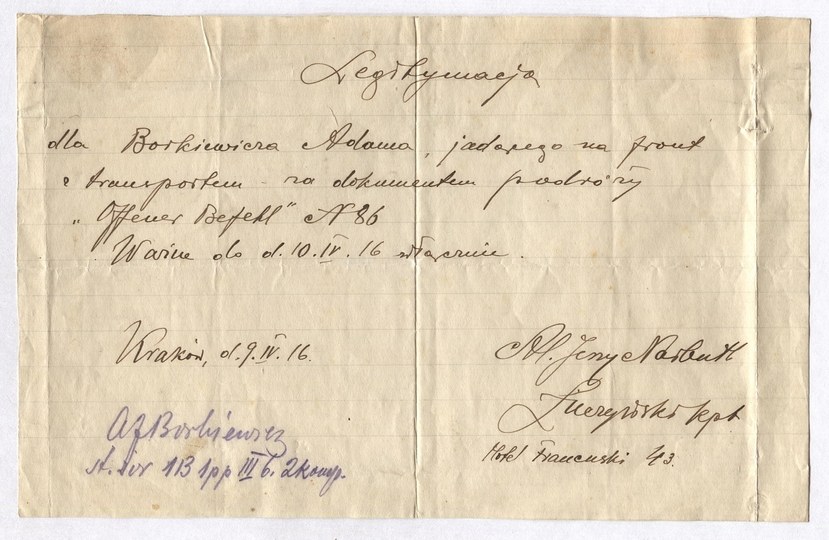 Legitymacja
dla Borkiewicza Adama, jadącego na front
z transportem - za dokumentem podróży
„Offener Befehl" N 86
Ważne do d. 10.IV.16 włącznie.
Kraków, d. 9.IV.16.
Jerzy Narbutt
kpt
Hotel Francuski 43.
AJBorkiewicz
1B 1pp III b. 2komp.